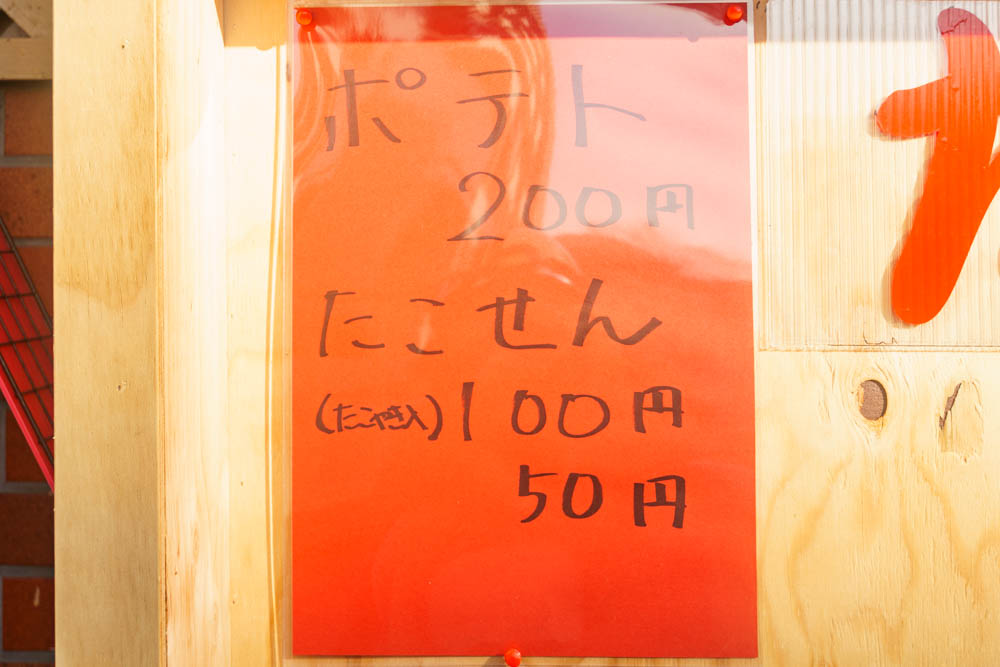 ポテト
200円
たこせん
(たこやき入)100円
50円